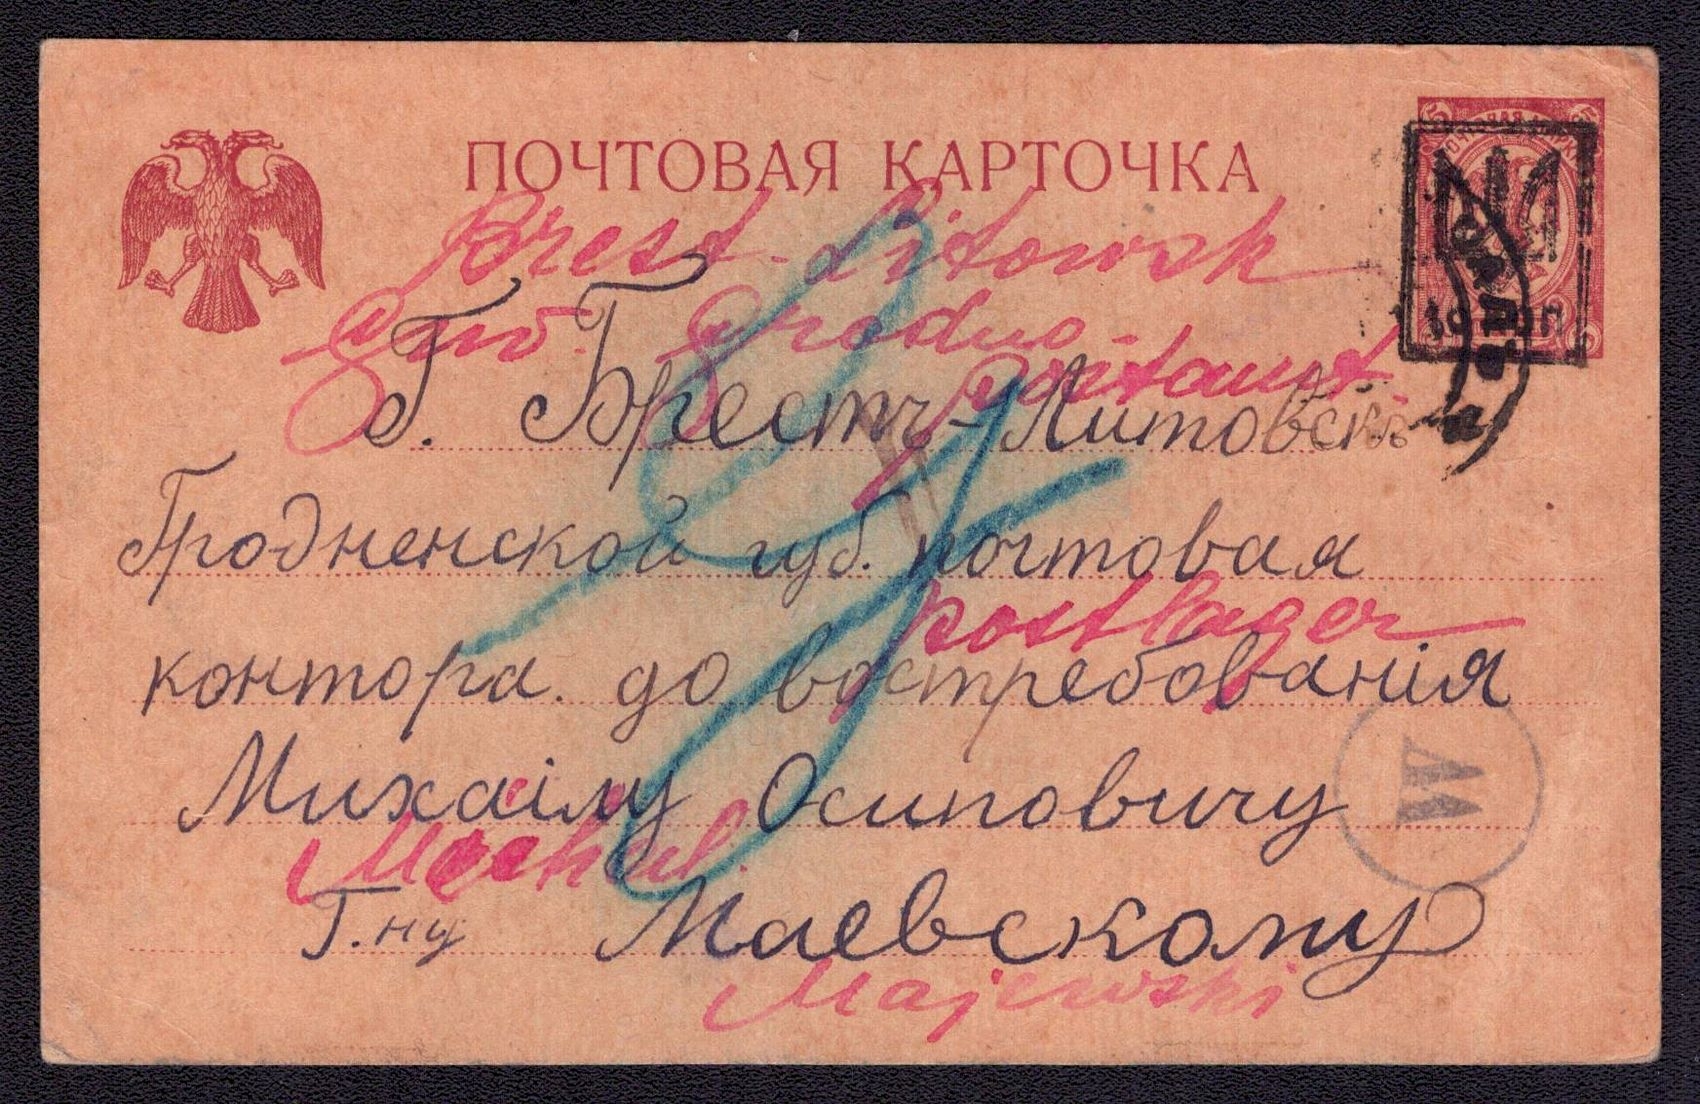 ПОЧТОВАЯ КАРТОЧКА
Brest-Litowsk
Gouv. Grodno
Postamt.
Г. Брестъ-Литовскъ
Гродненской губ. почтовая
postlager
контора. до востребованія
Михаілу Осиповичу
Michail.
Г.ну Маевскому
Majewski
W